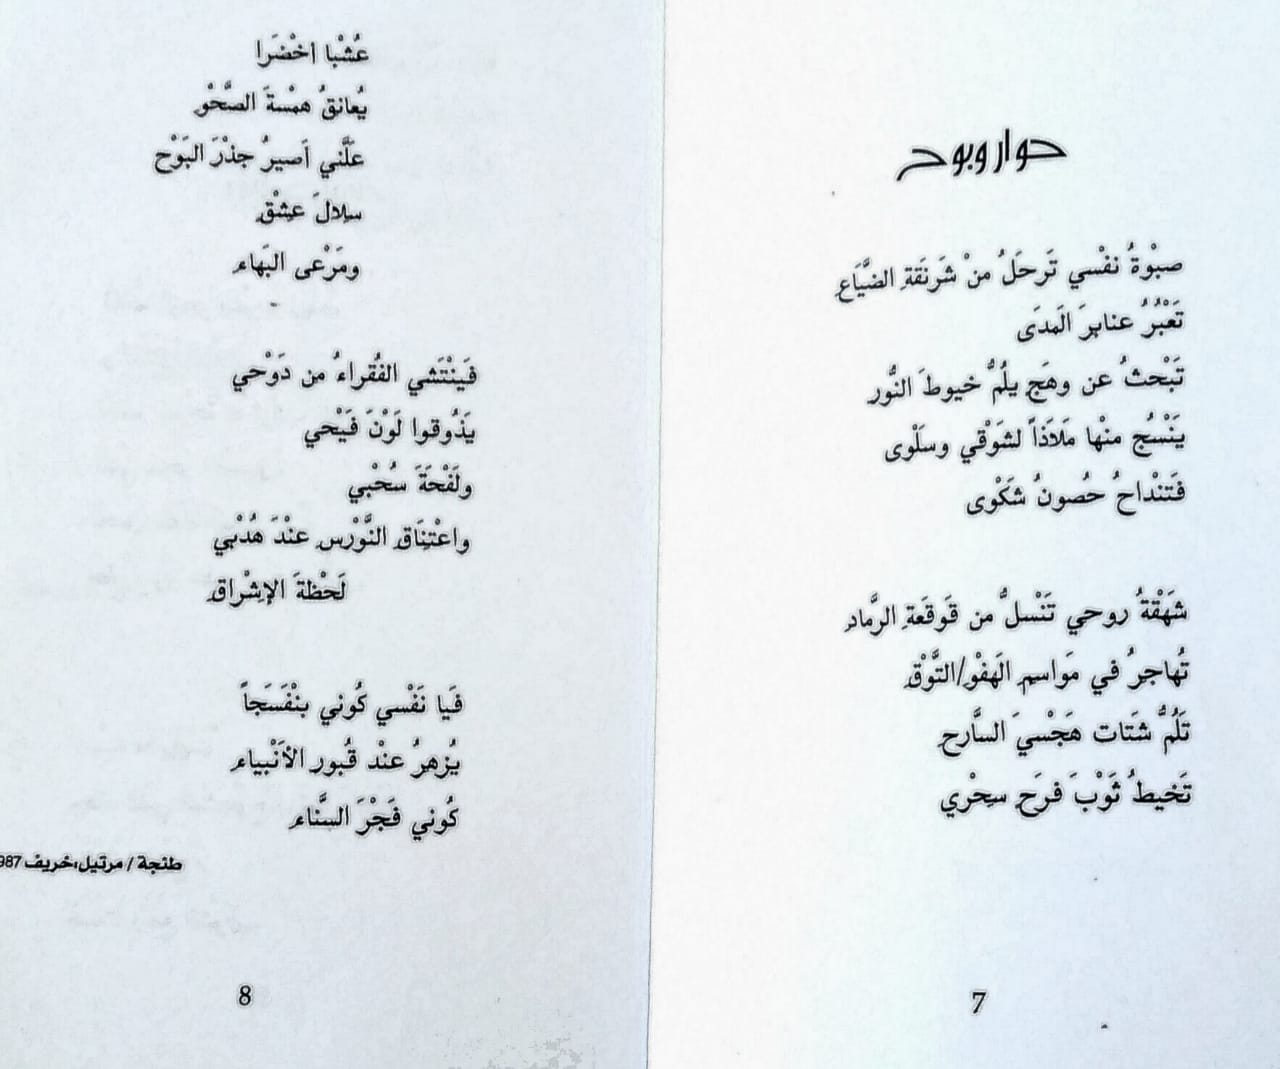 حوار وبوح
صبْوةُ نفْسي تَرحَلُ منْ شَرنَقةِ الضَّيَاعِ
تَعْبُرُ عنابرَ الَمدَى
تَبْحثُ عن وهَجٍ يلُمُّ خيوطَ النُّورِ
يَنْسُج منْها مَلَاذاً لشَوْقي وسلْوى
فَتنْداحُ حُصونُ شكَوْى
شهَقْةُ روحي تَنْسلُّ من قَوقَعَةِ الرَّمادِ
تُهاجرُ في مَواسمِ الَهفْوِ/التَّوْقِ
تَلُمُّ شتَات هَجْسيَ السَّارحِ
تَخيطُ ثَوْبَ فرَحٍ سِحْري
7
عُشْبا اخْضَرا
يُعانقُ همْسةَ الصَّحْوِ
علَّني أصيرُ جذْرَ البَوْحِ
سِلالَ عِشْقٍ
ومَرْعى البَهاءِ
فَينْتَشي الفُقراءُ من دَوْحي
يَذُوقوا لَوْنَ فَيْحي
ولَفْحَةَ سُحْبي
واعْتِنَاقِ النَّوْرسِ عنْدَ هُدْبي
لَحْظةَ الإشْراقِ
فَيا نَفْسي كُوني بنْفَسَجاً
يُزهرُ عنْد قُبورِ الأنْبياءِ
كُوني فَجْرَ السَّناءِ
طنجة / مرتيل،خريف 987
8